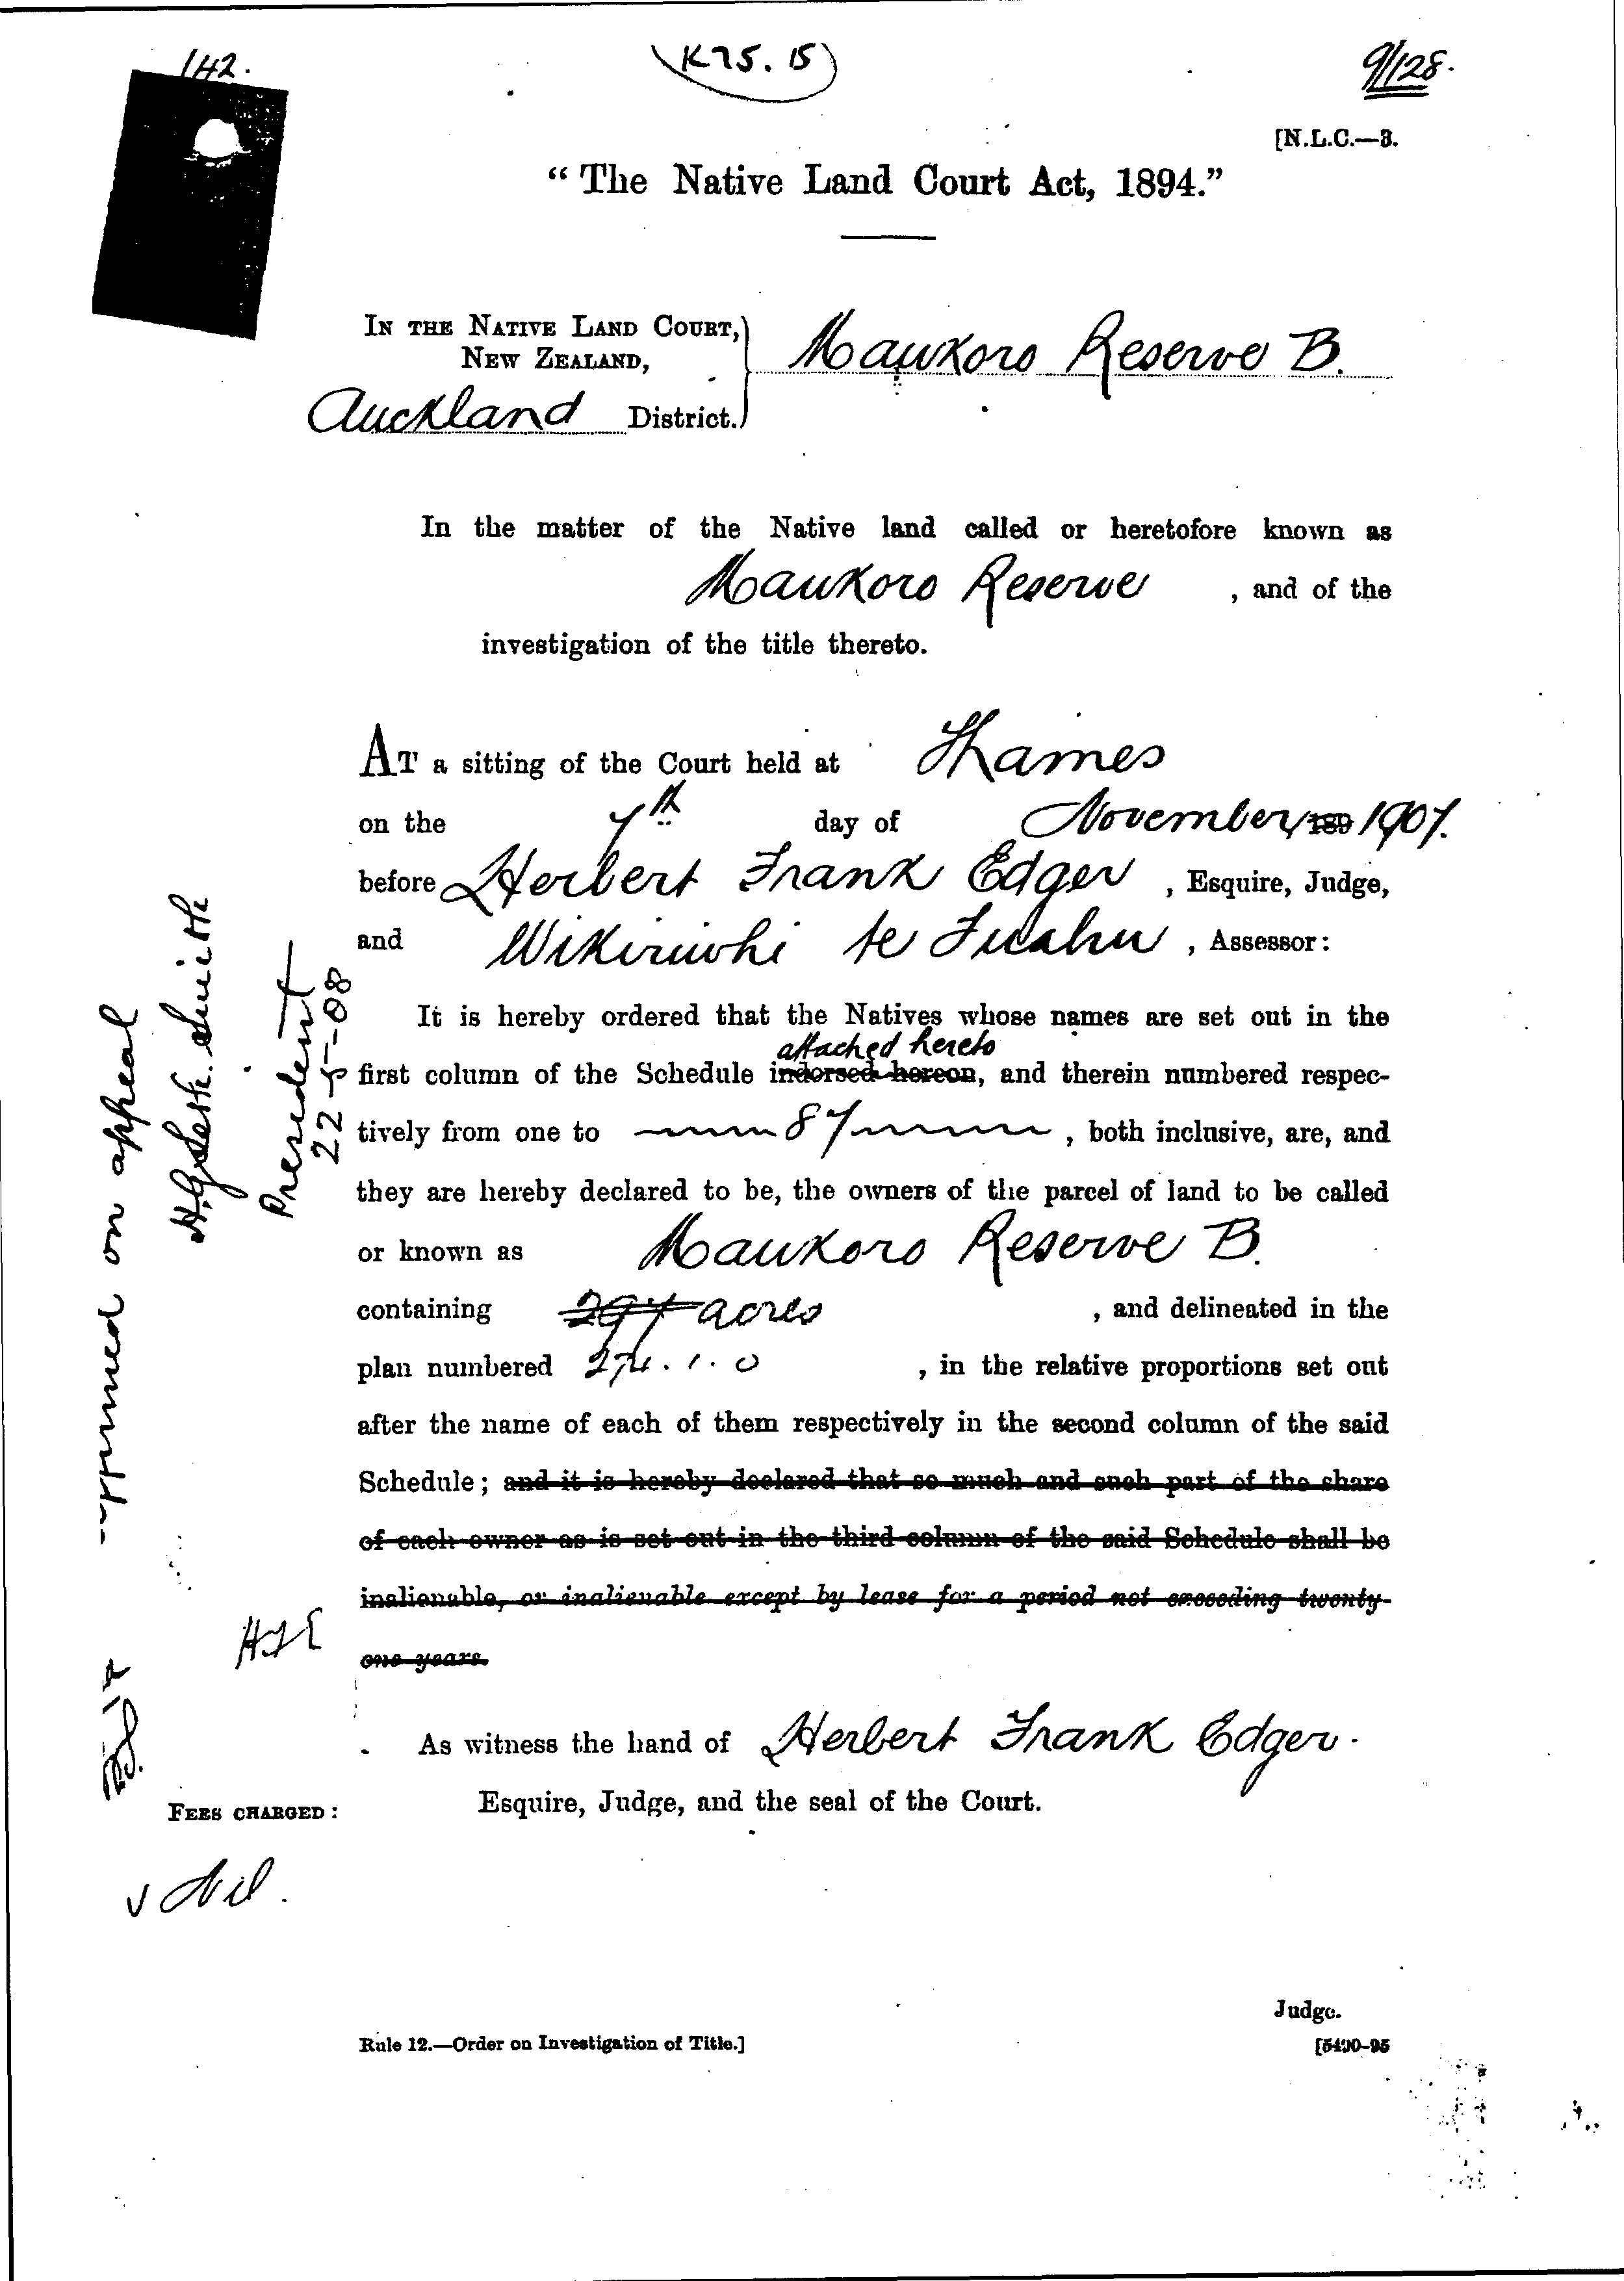 142.
(K75. 15)
9/128.
[N.L.C.—3.
“The Native Land Court Act, 1894.”
IN THE NATIVE LAND COURT,
NEW ZEALAND,
Auckland District.
Maukoro Reserve B.
In the matter of the Native land called or heretofore known as
Maukoro Reserve, and of the
investigation of the title thereto.
AT a sitting of the Court held at Thames
on the 7th day of November, 189 1907.
before Herbert Frank Edger, Esquire, Judge,
and Wikiriwhi te Tuahu, Assessor:
It is hereby ordered that the Natives whose names are set out in the
attached hereto
first column of the Schedule indorsed hereon, and therein numbered respec-
tively from one to 87, both inclusive, are, and
they are hereby declared to be, the owners of the parcel of land to be called
or known as Maukoro Reserve B.
containing 297 acres, and delineated in the
plan numbered 274.1.0, in the relative proportions set out
after the name of each of them respectively in the second column of the said
Schedule; and it is hereby declared that so much and such part of the share
of each owner as is set out in the third column of the said Schedule shall be
inalienable, or inalienable except by lease for a period not exceeding twenty-
one years.
on appeal
H.G. Seth. Smith
President
22-5-08
HFE
As witness the hand of Herbert Frank Edger.
Esquire, Judge, and the seal of the Court.
FEES CHARGED:
Nil.
Judge.
Rule 12.—Order on Investigation of Title.]
[5490-95